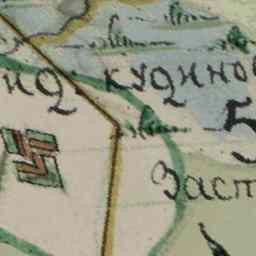 ид: кудинов
5
Заст